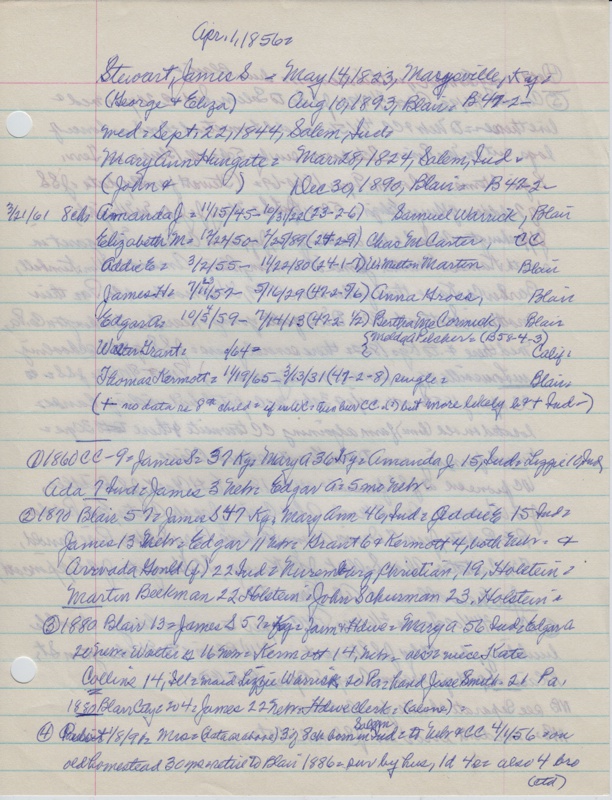 Apr. 1, 1856 =
Stewart, James S - May 14, 1823, Marysville, Ky =
(George & Eliza) Aug 10, 1893, Blair = B 47-2-
wed = Sept, 22, 1844, Salem, Ind
Mary Ann Hungate = Mar 28, 1824, Salem, Ind
(John & ) Dec 30, 1890, Blair = B 47-2-
3/21/61 8ch Amanda J = 11/15/45 - 10/31/20 (23-2-6) Samuel Warrick, Blair
Elizabeth M = 12/24/50 - 7/25/89 (24-2-9) Chas McCarter, CC
Addie E = 3/2/55 - 11/22/80 (24-1-7) Martin Blair
James H = 5/16/29 (47-2-5/6) Anna Gross, Blair
Edgar A = 10/5/59 - 7/14/13 (47-2-1/2) Bertha McCormick, Blair
{Madga Pilcher = (B58-4-3)
Walter Grant = /64 = Calif =
Thomas Kermott = 11/19/65 - 3/13/31 (47-2-8) single = Blair
(+ no data re 8th child = but more likely Ind -)
① 1860 CC - 9 = James S = 37 Ky = Mary A 36 = Amanda J 15, Ind = Lizzie 10 Ind,
Ada 7 Ind = James 3 Nebr = Edgar A = 5 mo Nebr
② 1870 Blair 57 = James S 47 Ky, Mary Ann 46, Ind = Addie E 15 Ind =
James 13 Nebr = Edgar 11 Nebr = Grant 6 & Kermott 4, both Nebr = &
Gould (f) 22 Ind = Christian, 19, Holstein =
Martin Beekman 22 Holstein = John Schurman 23, Holstein =
③ 1880 Blair 13 = James S 57 Ky = Farm & = Mary A 56 Ind, Edgar A
20 Nebr = Walter G 16 Nebr = Kermott 14, Nebr = also niece Kate
Collins 14, Ill = maid Lizzie Warrick 20 Pa = hand Jesse Smith = 21 Pa,
1880 Blair City = 204 = James 22 Nebr Clerk = (alone) =
④ 1/8/91 = Mrs = (data as above) 3 of 8 ch born in Salem Ind = to Nebr & CC 4/1/56 = on
old homestead 30 yrs = retire to Blair 1886 = sur by hus, 1 d 4 s = also 4 bro
(ctd)